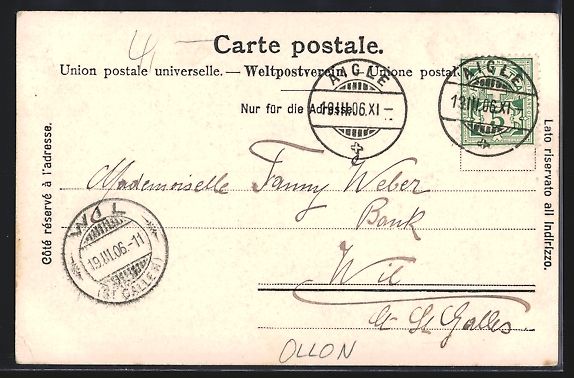 4,—
Carte postale.
Union postale universelle. — Weltpostverein. — Unione postale
Nur für die Adresse.
AIGLE
19.III.06.XI
AIGLE
19.III.06.XI
5
Côté réservé à l'adresse.
Lato riservato all Indirizzo.
Mademoiselle Fanny Weber
Bank
Wil
Ct St Galles
WYL
19.III.06.-11
(ST GALLEN)
OLLON